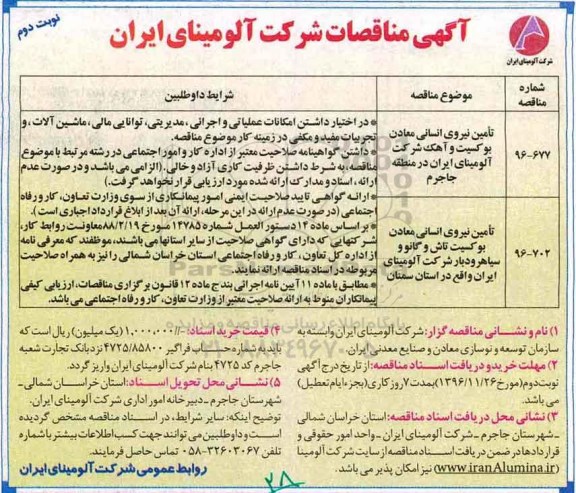 آگهی مناقصات شرکت آلومینای ایران
نوبت دوم
شرکت آلومینای ایران
شماره مناقصه
موضوع مناقصه
شرایط داوطلبین
۹۶-۶۷۷
تأمین نیروی انسانی معادن
بوکسیت و آهک شرکت
آلومینای ایران در منطقه
جاجرم
۹۶-۷۰۲
تأمین نیروی انسانی معادن
بوکسیت تاش و گانو و
سیاهرودبار شرکت آلومینای
ایران واقع در استان سمنان
* در اختیار داشتن امکانات عملیاتی و اجرائی، مدیریتی، توانایی مالی، ماشین آلات، و
تجربیات مفید و مکفی در زمینه کار موضوع مناقصه.
* داشتن گواهینامه صلاحیت معتبر از اداره کار و امور اجتماعی در رشته مرتبط با موضوع
مناقصه، به شرط داشتن ظرفیت کاری آزاد و خالی. (الزامی می باشد و در صورت عدم
ارائه، اسناد و مدارک ارائه شده مورد ارزیابی قرار نخواهد گرفت.)
* ارائه گواهی تایید صلاحیت ایمنی امور پیمانکاری از سوی وزارت تعاون، کار و رفاه
اجتماعی (در صورت عدم ارائه در این مرحله، ارائه آن بعد از ابلاغ قرارداد اجباری است).
* بر اساس ماده ۱۴ دستور العمل شماره ۱۴۷۸۵ مورخ ۸۸/۲/۱۹ معاونت روابط کار،
شرکتهایی که دارای گواهی صلاحیت از سایر استانها می باشند، موظفند که معرفی نامه
از اداره کل تعاون، کار و رفاه اجتماعی استان خراسان شمالی را نیز به همراه صلاحیت
مربوطه در اسناد مناقصه ارائه نمایند.
* مطابق با ماده ۱۱ آیین نامه اجرائی بند ج ماده ۱۲ قانون برگزاری مناقصات، ارزیابی کیفی
پیمانکاران منوط به ارائه صلاحیت معتبر از وزارت تعاون، کار و رفاه اجتماعی می باشد.
۱) نام و نشانی مناقصه گزار: شرکت آلومینای ایران وابسته به
سازمان توسعه و نوسازی معادن و صنایع معدنی ایران
۲) مهلت خرید و دریافت اسناد مناقصه: از تاریخ درج آگهی
نوبت دوم (مورخ ۱۳۹۶/۱۱/۲۶) بمدت ۷ روز کاری (بجزء ایام تعطیل)
می باشد.
۳) نشانی محل دریافت اسناد مناقصه: استان خراسان شمالی
- شهرستان جاجرم - شرکت آلومینای ایران - واحد امور حقوقی و
قراردادها در ضمن دریافت اسناد مناقصه از سایت شرکت آلومینا
(www.iranAlumina.ir) نیز امکان پذیر می باشد.
۴) قیمت خرید اسناد: -/۱,۰۰۰,۰۰۰ (یک میلیون) ریال است که
باید به شماره حساب فراگیر ۴۷۲۵/۸۵۸۰۰ نزد بانک تجارت شعبه
جاجرم کد ۴۷۲۵ بنام شرکت آلومینای ایران واریز گردد.
۵) نشانی محل تحویل اسناد: استان خراسان شمالی -
شهرستان جاجرم - دبیرخانه امور اداری شرکت آلومینای ایران.
توضیح اینکه: سایر شرایط، در اسناد مناقصه مشخص گردیده
است و داوطلبین می توانند جهت کسب اطلاعات بیشتر با شماره
تلفن ۳۲۶۰۳۰۶۷-۰۵۸ تماس حاصل فرمایند.
روابط عمومی شرکت آلومینای ایران
۲۸